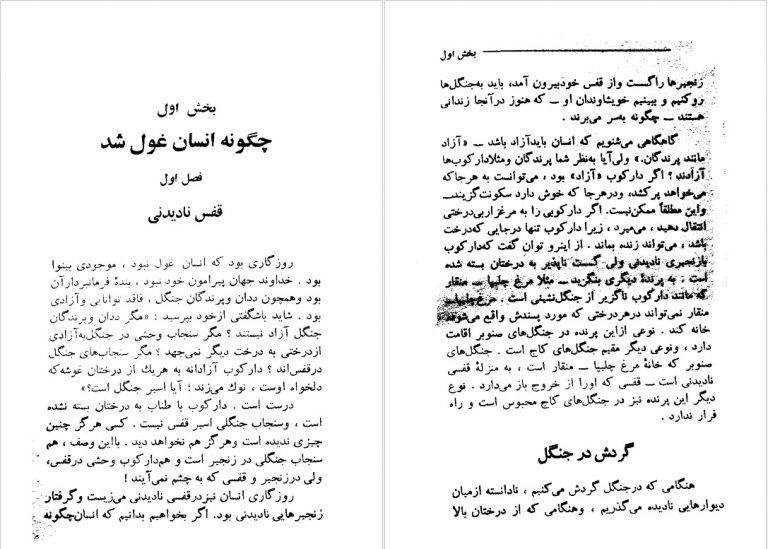 بخش اول
چگونه انسان غول شد
فصل اول
قفس نادیدنی
روزگاری بود که انسان غول نبود ، موجودی بینوا
بود . خداوند جهان پیرامون خود نبود ، بندۀ فرمانبردارآن
بود وهمچون ددان وپرندگان جنگل ، فاقد توانایی وآزادی
بود . شاید باشگفتی ازخود بپرسید : «مگر ددان وپرندگان
جنگل آزاد نیستند ؟ مگر سنجاب وحشی در جنگل‌به‌آزادی
ازدرختی به درخت دیگر نمی‌جهد ؟ مگر سنجاب‌های جنگل
درقفس‌اند ؟ دارکوب آزادانه به هریك از درختان غوشه‌که
دلخواه اوست ، نوك می‌زند ؛ آیا اسیر جنگل است؟»
درست است . دارکوب با طناب به درختان بسته نشده
است ، وسنجاب جنگلی اسیر قفس نیست . کسی هرگز چنین
چیزی ندیده است وهرگز هم نخواهد دید . بااین وصف ، هم
سنجاب جنگلی در زنجیر است و هم‌دارکوب وحشی درقفس،
ولی درزنجیر و قفسی که به چشم نمی‌آیند !
روزگاری انسان نیزدرقفسی نادیدنی می‌زیست وگرفتار
زنجیرهایی نادیدنی بود. اگر بخواهیم بدانیم که انسان‌چگونه
بخش اول
زنجیرها راگست واز قفس خودبیرون آمد، باید به‌جنگل‌ها
روکنیم و ببینیم خویشاوندان او ــ که هنوز درآنجا زندانی
هستند ــ چگونه به‌سر می‌برند .
گاهگاهی می‌شنویم که انسان بایدآزاد باشد ــ «آزاد
مانند پرندگان.» ولی‌آیا به‌نظر شما پرندگان ومثلادارکوب‌ها
آزادند ؟ اگر دارکوب «آزاد» بود ، می‌توانست به هرجاکه
می‌خواهد پرکشد، ودرهرجا که خوش دارد سکونت‌گزیند...
واین مطلقاً ممکن‌نیست. اگر دارکوبی را به مرغزاربی‌درختی
انتقال دهید ، می‌میرد ، زیرا دارکوب تنها درجایی که‌درخت
باشد ، می‌تواند زنده بماند . از اینرو توان گفت که‌دارکوب
بازنجیری نادیدنی ولی گست ناپذیر به درختان بسته شده
است . به پرندۀ دیگری بنگرید ــ مثلا مرغ چلیپا ــ منقار
که مانند دارکوب ناگزیر از جنگل‌نشینی است . مرغ‌چلیپا ــ
منقار نمی‌تواند درهردرختی که مورد پسندش واقع می‌شود ،
خانه کند . نوعی ازاین پرنده در جنگل‌های صنوبر اقامت
دارد ، ونوعی دیگر مقیم جنگل‌های کاج است . جنگل‌های
صنوبر که خانۀ مرغ چلیپا ــ منقار است ، به منزلۀ قفسی
نادیدنی است ــ قفسی که اورا از خروج باز می‌دارد . نوع
دیگر این پرنده نیز در جنگل‌های کاج محبوس است و راه
فرار ندارد .
گردش در جنگل
هنگامی که درجنگل گردش می‌کنیم ، نادانسته ازمیان
دیوارهایی نادیده می‌گذریم ، وهنگامی که از درختان بالا